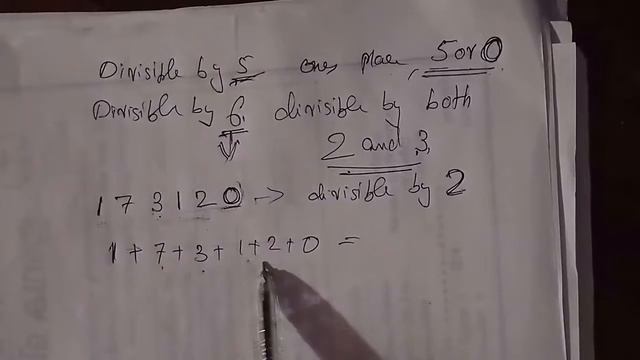 Divisible by 5 ones place, 5 or 0
Divisible by 6 divisible by both
2 and 3
173120 → divisible by 2
1+7+3+1+2+0 =